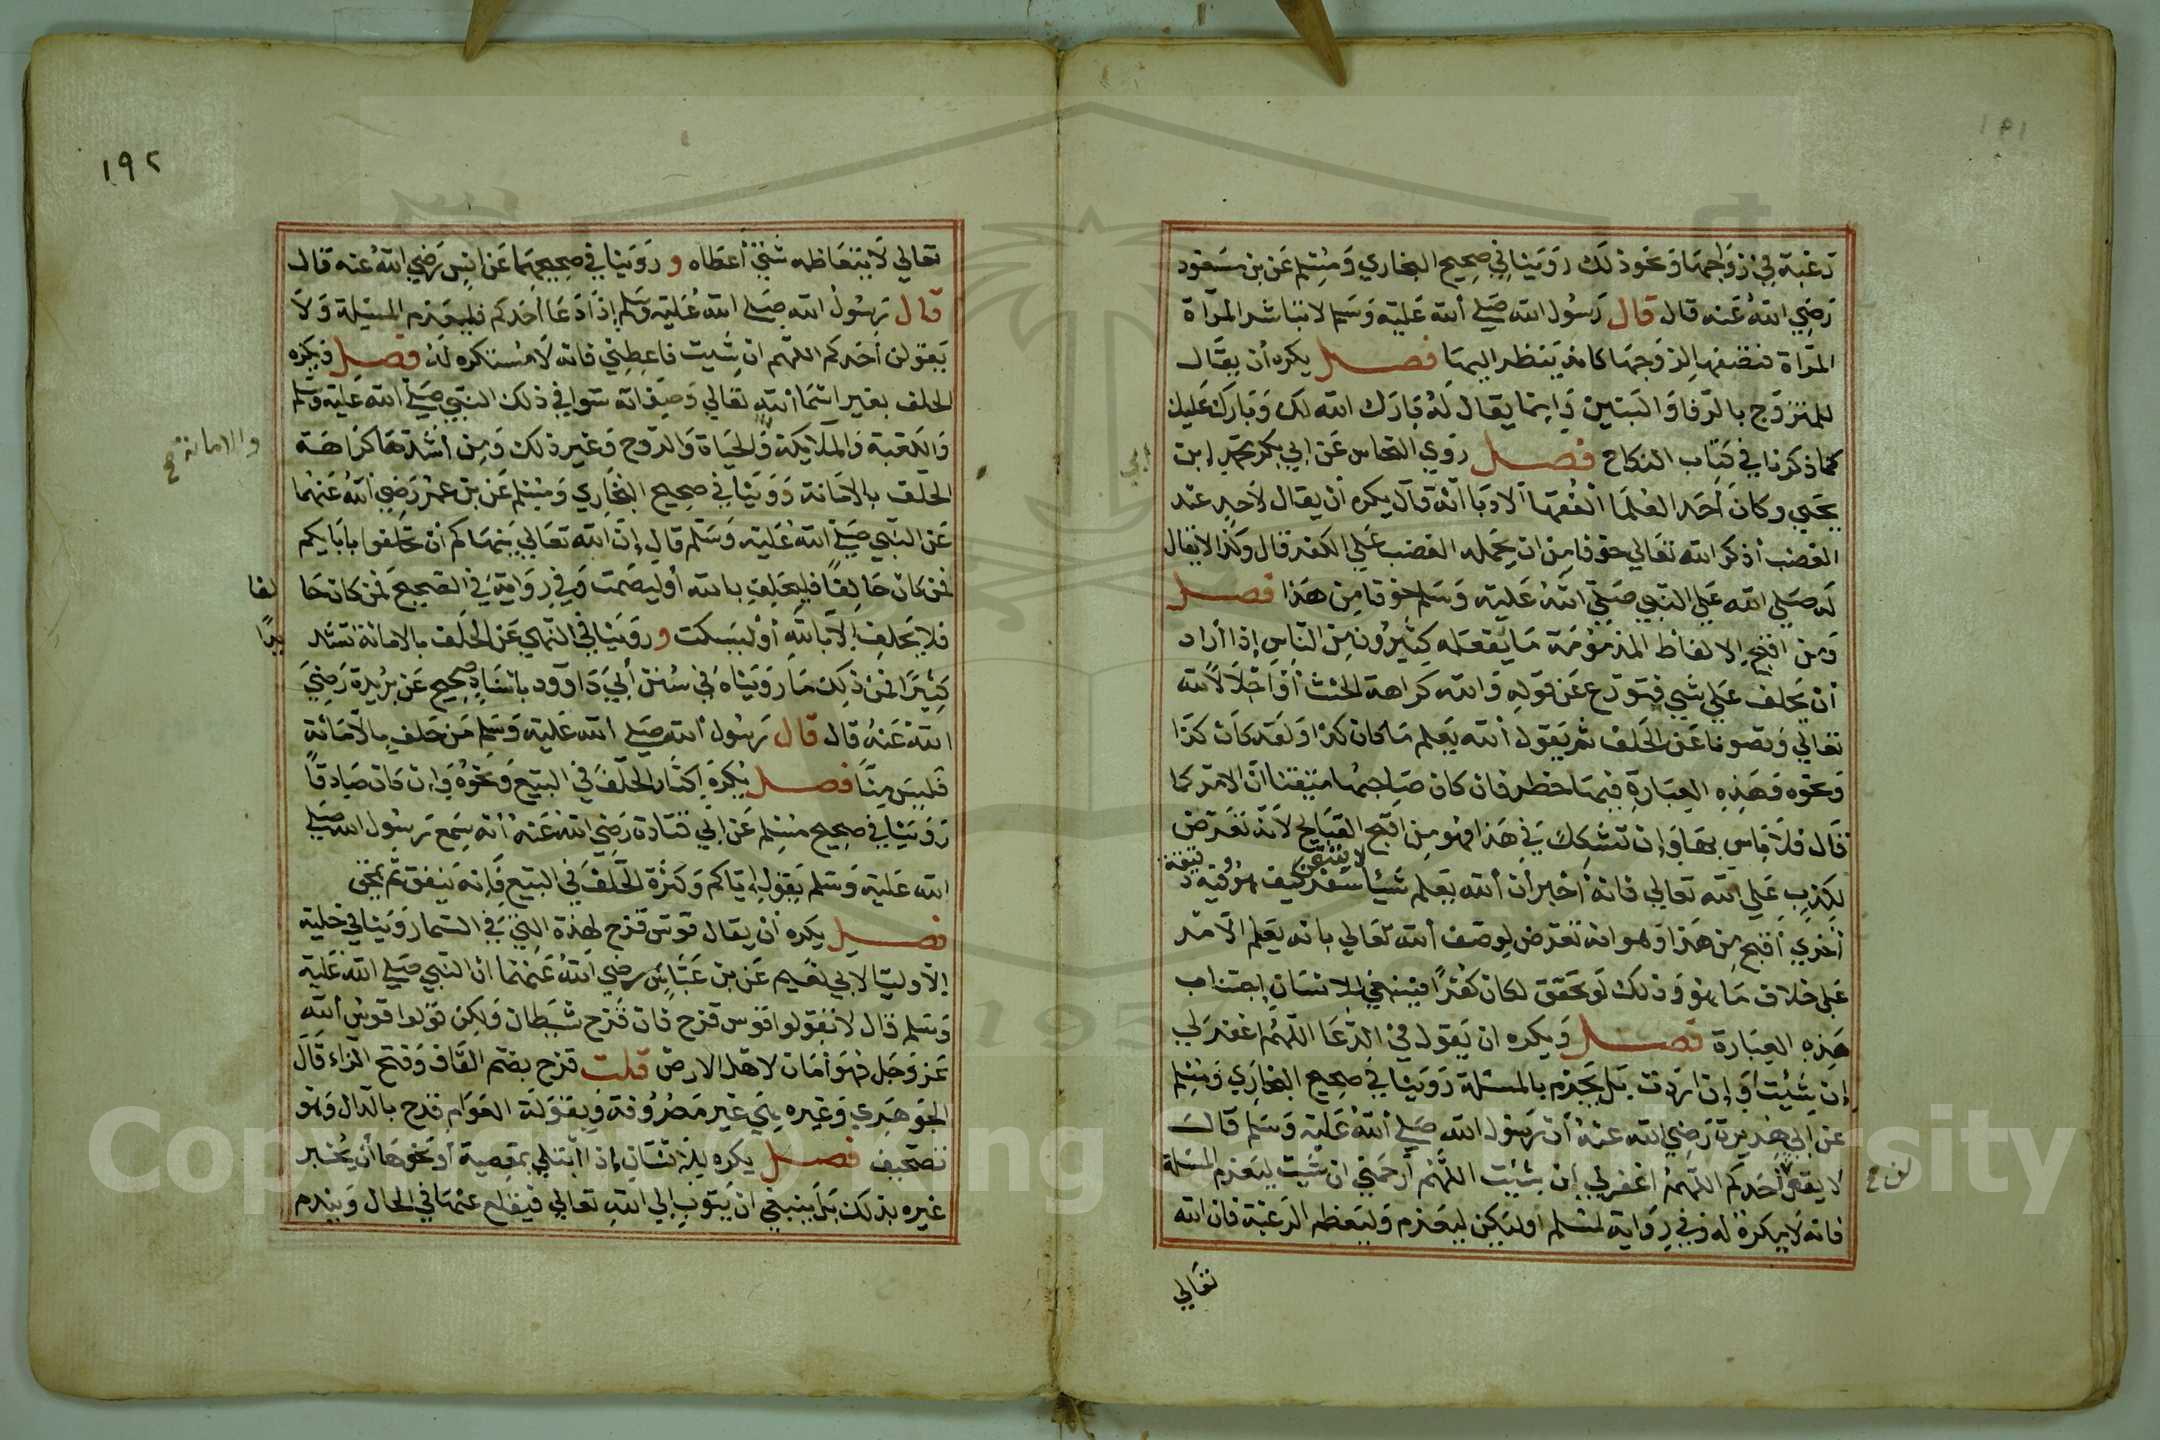 رغبة في زواجها ونحو ذلك روينا في صحيح البخاري ومسلم عن بن مسعود
رضي الله عنه قال قال رسول الله صلي الله عليه وسلم لا تباشر المرأة
المرأة فتصفها لزوجها كانه ينظر اليها فصل يكره أن يقال
للمتزوج بالرفا والبنين وانما يقال له بارك الله لك وبارك عليك
كما ذكرنا في كتاب النكاح فصل روي النحاس عن ابي بكر محمد ابن
ابي
يحيي وكان أحد العلما الفقها الادبا أنه قال يكره أن يقال لاحد عند
الغضب أذكر الله تعالي خوفا من ان يحمله الغضب علي الكفر قال وكذا لا يقال
له صلي الله علي النبي صلي الله عليه وسلم خوفا من هذا فصل
ومن اقبح الالفاظ المذمومة ما يفعله كثيرون من الناس إذا أراد
أن يحلف علي شيي فيتورع عن قوله والله كراهة الحنث أو اجلالا لله
تعالي وتصونا عن الحلف ثم يقول الله يعلم ما كان كذا ولقد كان كذا
ونحوه وهذه العبارة فيها خطر فان كان صاحبها متيقنا أن الامر كما
قال فلا باس بها وإن تشكك في هذا فهو من اقبح القبايح لانه تعرض
لكذب علي الله تعالي فانه أخبر أن الله يعلم شيئا لا يتيقن كيف هو وفيه دقيقة
أخري أقبح من هذا وهو انه تعرض لوصف الله تعالي بانه يعلم الامر
علي خلاف ما هو وذلك لو تحقق لكان كفرا فينبغي للانسان اجتناب
هذه العبارة فصل ويكره ان يقول في الدعا اللهم اغفر لي
إن شئت أو إن اردت بل يجزم بالمسئلة روينا في صحيح البخاري ومسلم
عن ابي هريرة رضي الله عنه أن رسول الله صلي الله عليه وسلم قال
لا يقولن أحدكم اللهم اغفر لي إن شئت اللهم أرحمني ان شئت ليعزم المسئلة
فانه لا مكره له وفي رواية لمسلم ولكن ليعزم وليعظم الرغبة فان الله
تعالي
١٩٢
تعالي لا يتعاظمه شيئ أعطاه و روينا في صحيحهما عن انس رضي الله عنه قال
قال رسول الله صلي الله عليه وسلم إذا دعا أحدكم فليعزم المسئلة ولا
يقولن أحدكم اللهم ان شيت فاعطني فانه لا مستكره له فصل ويكره
الحلف بغير اسما الله تعالي وصفاته سوا في ذلك النبي صلي الله عليه وسلم
والكعبة والملايكة والحياة والروح وغير ذلك ومن أشدها كراهة
والامانة صح
الحلف بالامانة وروينا في صحيح البخاري ومسلم عن بن عمر رضي الله عنهما
عن النبي صلي الله عليه وسلم قال إن الله تعالي ينهاكم أن تحلفوا بابايكم
فمن كان حالفا فليحلف بالله أو ليصمت وفي رواية في الصحيح فمن كان حالفا
فلا يحلف إلا بالله أو ليسكت و روينا في النهي عن الحلف بالامانة تشديدا
كثيرا فمن ذلك ما رويناه في سنن أبي داوود باسناد صحيح عن بريدة رضي
الله عنه قال قال رسول الله صلي الله عليه وسلم من حلف بالامانة
فليس منا فصل يكره إكثار الحلف في البيع ونحوه وإن كان صادقا
روينا في صحيح مسلم عن ابي قتادة رضي الله عنه أنه سمع رسول الله صلي
الله عليه وسلم يقول إياكم وكثرة الحلف في البيع فإنه ينفق ثم يمحق
فصل يكره أن يقال قوس قزح لهذة التي في السما روينا في حلية
الاوليا لابي نعيم عن بن عباس رضي الله عنهما ان النبي صلي الله عليه
وسلم قال لا تقولوا قوس قزح فان قزح شيطان ولكن قولوا قوس الله
عز وجل فهو أمان لاهل الارض قلت قزح بضم القاف وفتح الزاء قال
الجوهري وغيره هي غير مصروفة ويقوله العوام قدح بالدال وهو
تصحيف فصل يكره للانسان إذا ابتلي بمعصية أو نحوها أن يخبر
غيره بذلك بل ينبغي ان يتوب إلي الله تعالي فيقلع عنها في الحال ويندم